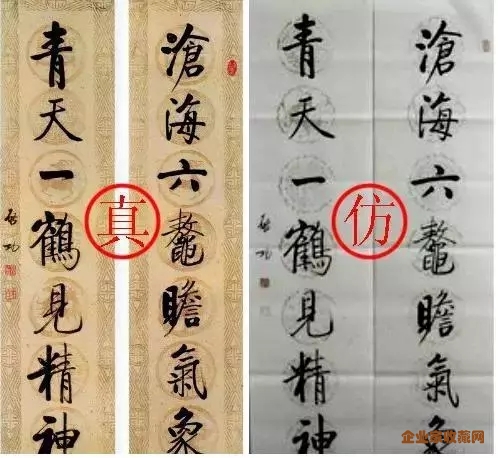 滄海六鼇瞻氣象
青天一鶴見精神
启功
真
滄海六鼇瞻氣象
青天一鶴見精神
启功
仿
企业家收藏网